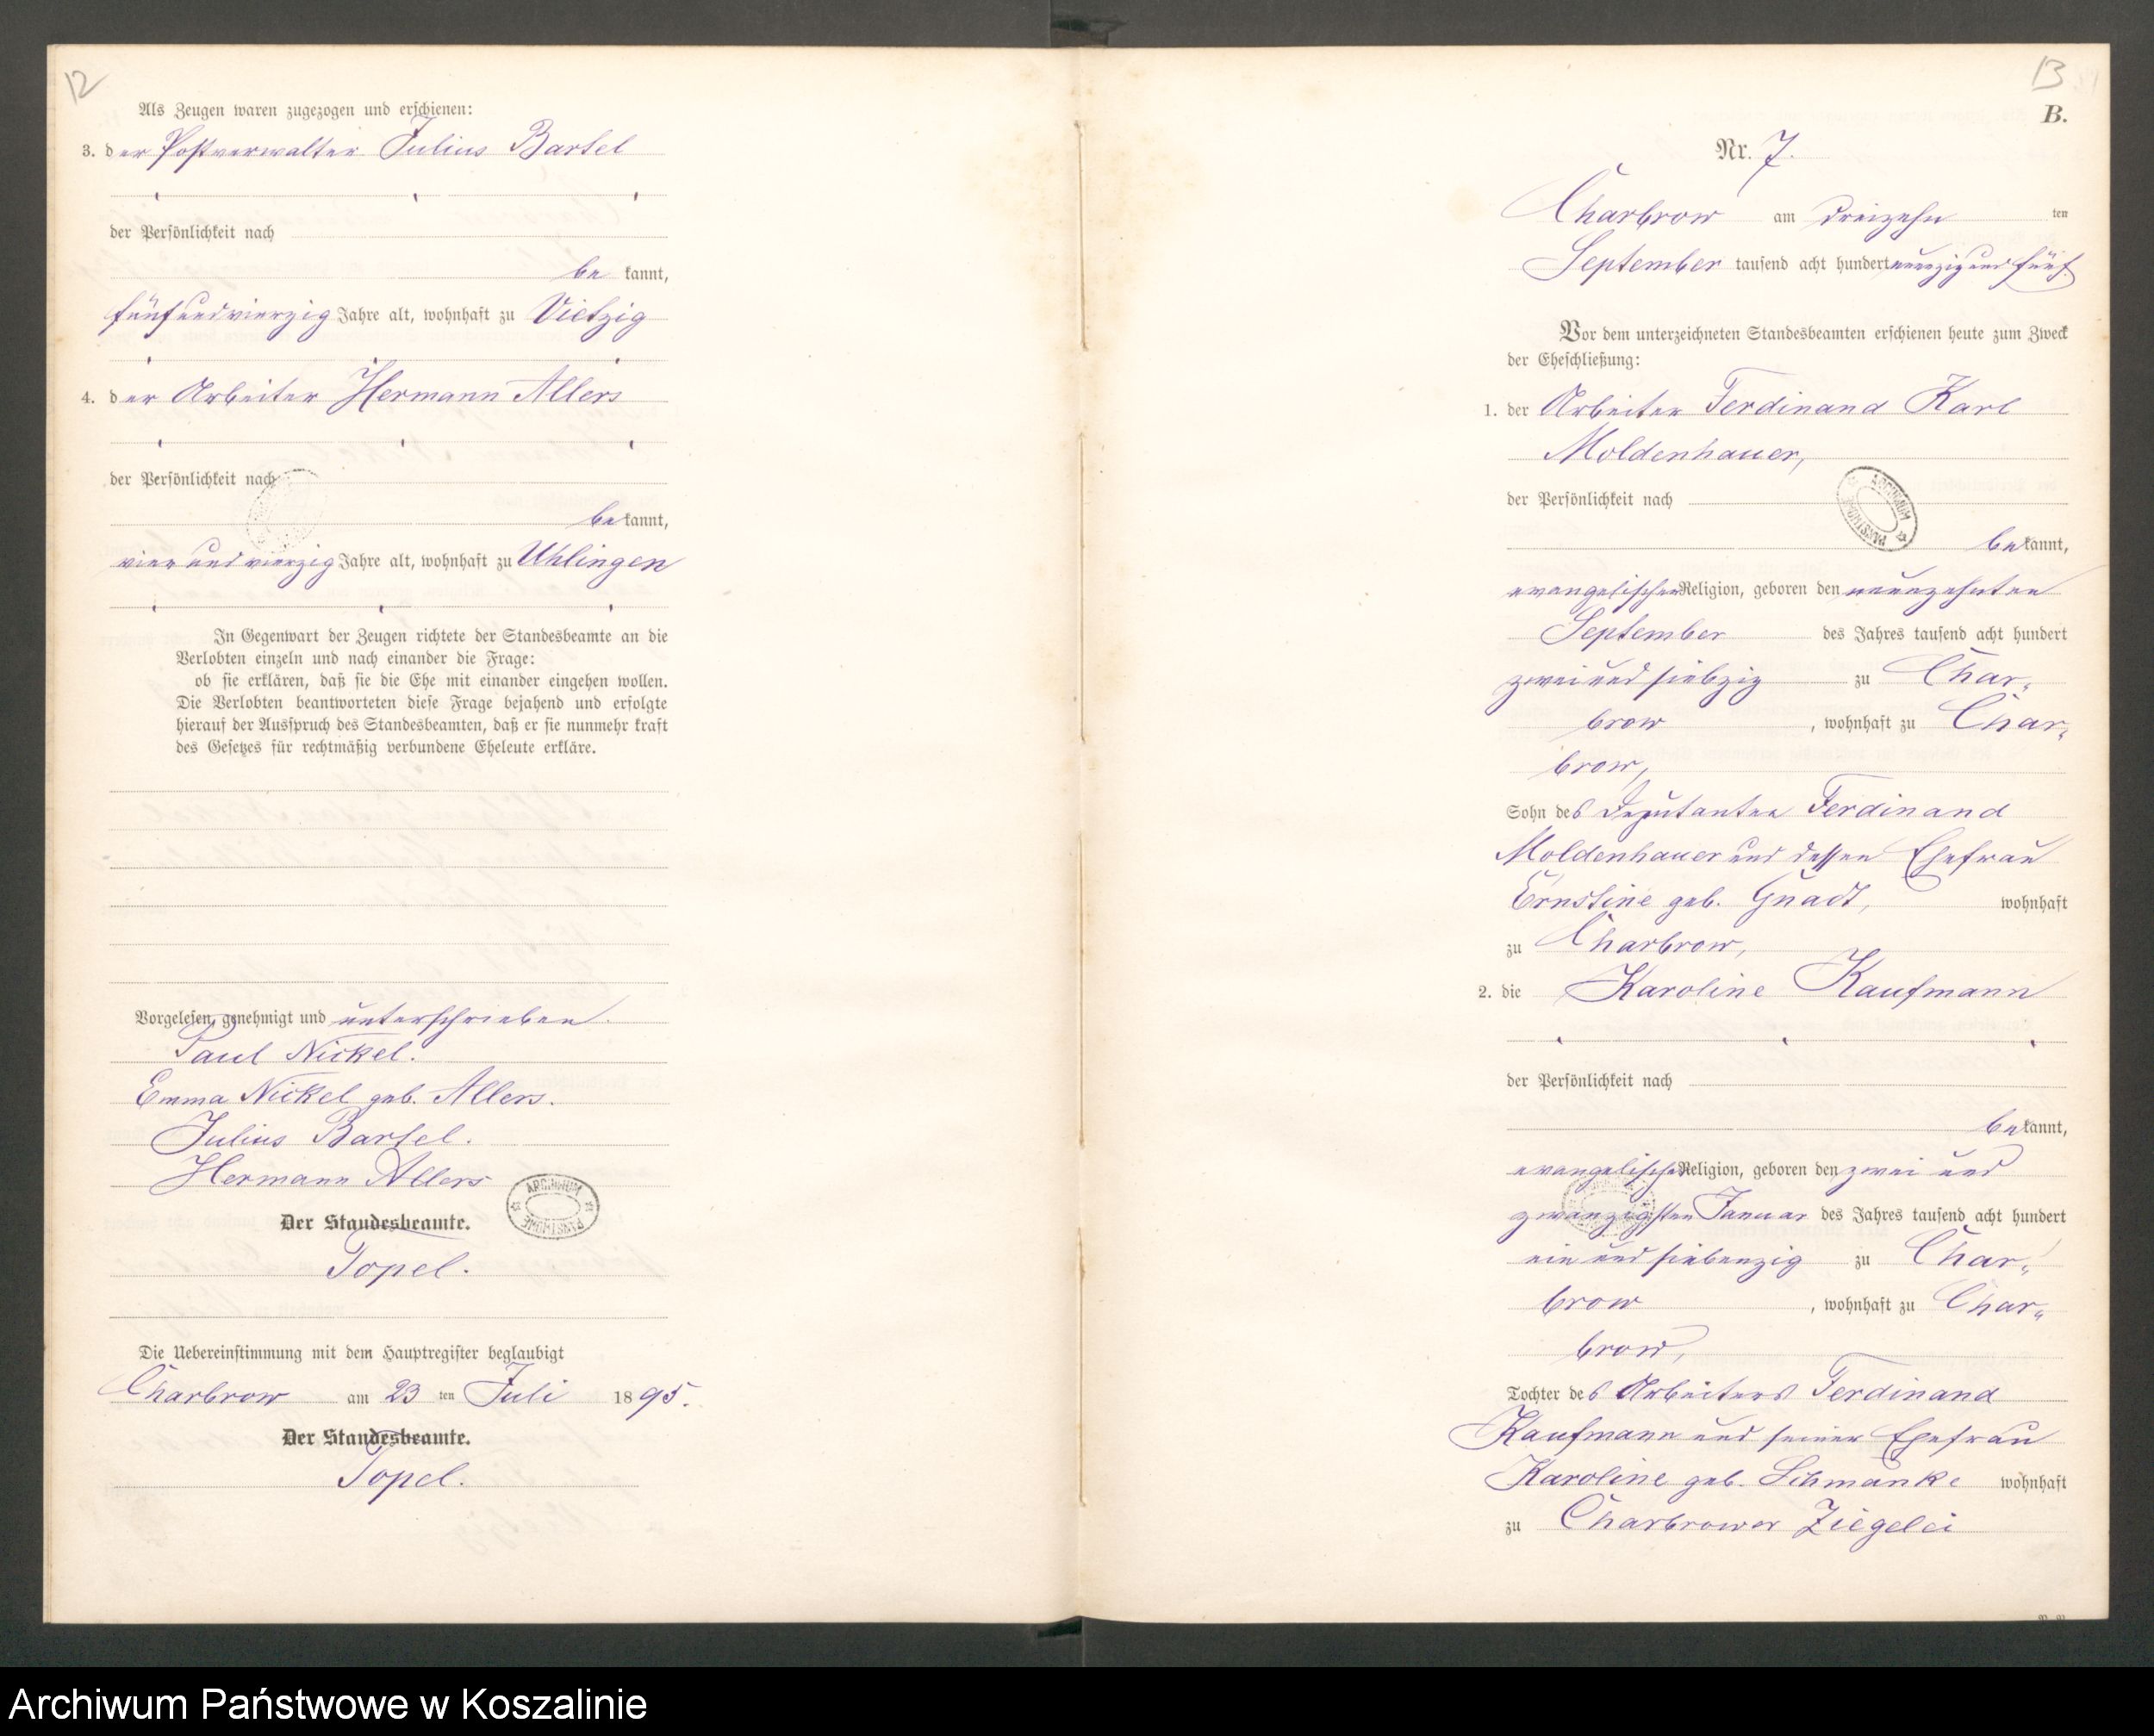 12
Als Zeugen waren zugezogen und erschienen:
3. der Postverwalter Julius Bartel
der Persönlichkeit nach
be kannt,
fünfundvierzig Jahre alt, wohnhaft zu Vietzig
4. der Arbeiter Hermann Allers
der Persönlichkeit nach
be kannt,
vier und vierzig Jahre alt, wohnhaft zu Uhlingen
In Gegenwart der Zeugen richtete der Standesbeamte an die
Verlobten einzeln und nach einander die Frage:
ob sie erklären, daß sie die Ehe mit einander eingehen wollen.
Die Verlobten beantworteten diese Frage bejahend und erfolgte
hierauf der Ausspruch des Standesbeamten, daß er sie nunmehr kraft
des Gesetzes für rechtmäßig verbundene Eheleute erkläre.
Vorgelesen, genehmigt und unterschrieben.
Paul Nickel.
Emma Nickel geb. Allers.
Julius Bartel.
Hermann Allers
ARCHIWUM PAŃSTWOWE
Der Standesbeamte.
Topel.
Die Uebereinstimmung mit dem Hauptregister beglaubigt
Charbrow am 23 ten Juli 1895.
Der Standesbeamte.
Topel.
13
B.
Nr. 7.
Charbrow am dreizehn ten
September tausend acht hundert neunzig und fünf.
Vor dem unterzeichneten Standesbeamten erschienen heute zum Zweck
der Eheschließung:
1. der Arbeiter Ferdinand Karl
Moldenhauer,
der Persönlichkeit nach
ARCHIWUM PAŃSTWOWE
be kannt,
evangelischer Religion, geboren den neunzehnten
September des Jahres tausend acht hundert
zwei und siebzig zu Char-
brow, wohnhaft zu Char-
brow,
Sohn des Deputanten Ferdinand
Moldenhauer und dessen Ehefrau
Ernstine geb. Gnadt, wohnhaft
zu Charbrow,
2. die Karoline Kaufmann
der Persönlichkeit nach
be kannt,
evangelischer Religion, geboren den zwei und
zwanzigsten Januar des Jahres tausend acht hundert
ein und siebenzig zu Char-
brow, wohnhaft zu Char-
brow,
Tochter des Arbeiters Ferdinand
Kaufmann und seiner Ehefrau
Karoline geb. Schmanke wohnhaft
zu Charbrower Ziegelei
Archiwum Państwowe w Koszalinie